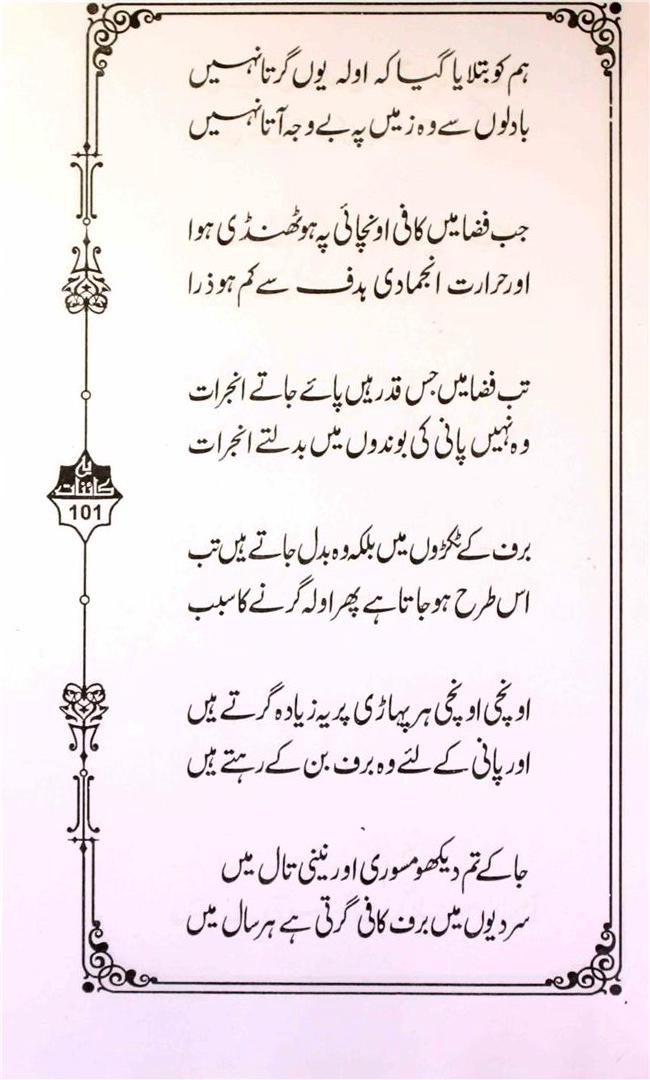 ہم کو بتلایا گیا کہ اولہ یوں گرتا نہیں
بادلوں سے وہ زمیں پہ بے وجہ آتا نہیں
جب فضا میں کافی اونچائی پہ ہو ٹھنڈی ہوا
اور حرارت انجمادی ہدف سے کم ہو ذرا
تب فضا میں جس قدر ہیں پائے جاتے انجرات
وہ نہیں پانی کی بوندوں میں بدلتے انجرات
برف کے ٹکڑوں میں بلکہ وہ بدل جاتے ہیں تب
اس طرح ہو جاتا ہے پھر اولہ گرنے کا سبب
اونچی اونچی ہر پہاڑی پر یہ زیادہ گرتے ہیں
اور پانی کے لئے وہ برف بن کے رہتے ہیں
جا کے تم دیکھو مسوری اور نینی تال میں
سردیوں میں برف کافی گرتی ہے ہر سال میں
یہ
کائنات
101